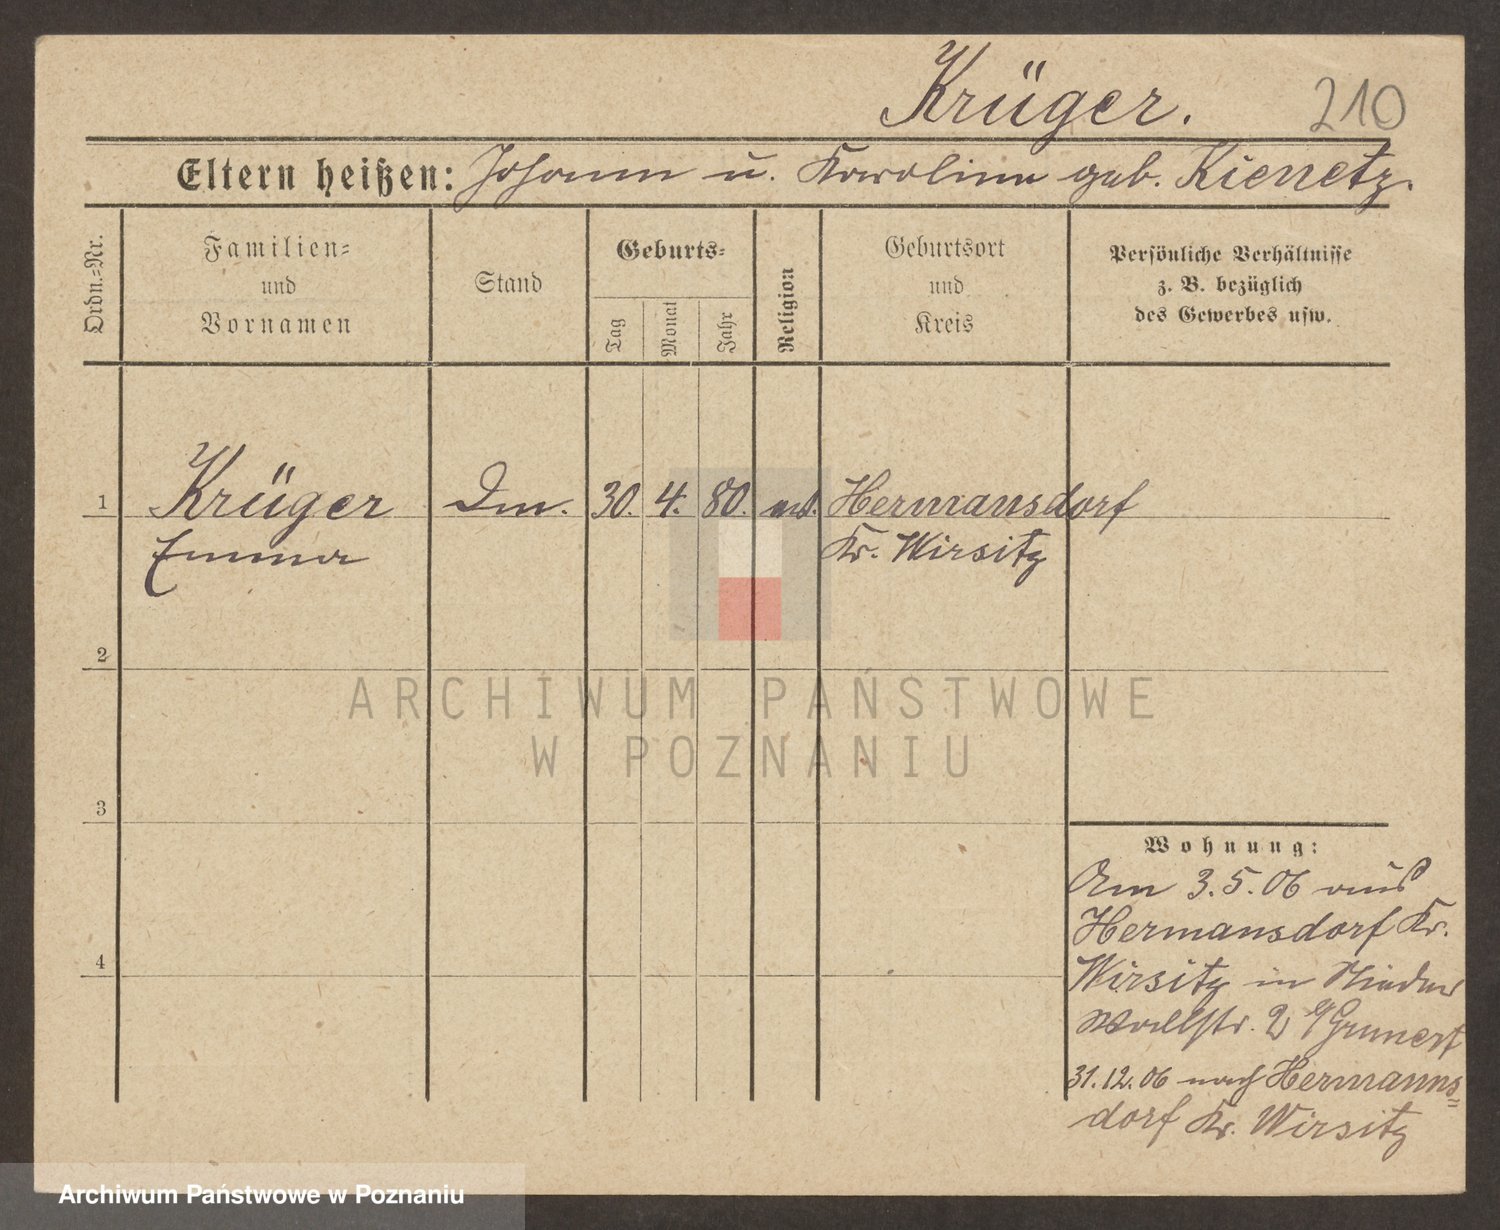 Krüger.
210
Eltern heißen: Johann u. Karoline geb. Kienetz.
Ordn.-Nr.
Familien-
und
Vornamen
Stand
Geburts-
Tag
Monat
Jahr
Religion
Geburtsort
und
Kreis
Persönliche Verhältnisse
z. B. bezüglich
des Gewerbes usw.
1 Krüger 30. 4. 80. Hermansdorf
Emma Kr. Wirsitz
2
ARCHIWUM PAŃSTWOWE
W POZNANIU
3
Wohnung:
Am 3.5.06 aus
Hermansdorf Kr.
4
Wirsitz in Nieder
Wallstr. 2 Grunert
31.12.06 nach Hermanns=
dorf Kr. Wirsitz
Archiwum Państwowe w Poznaniu